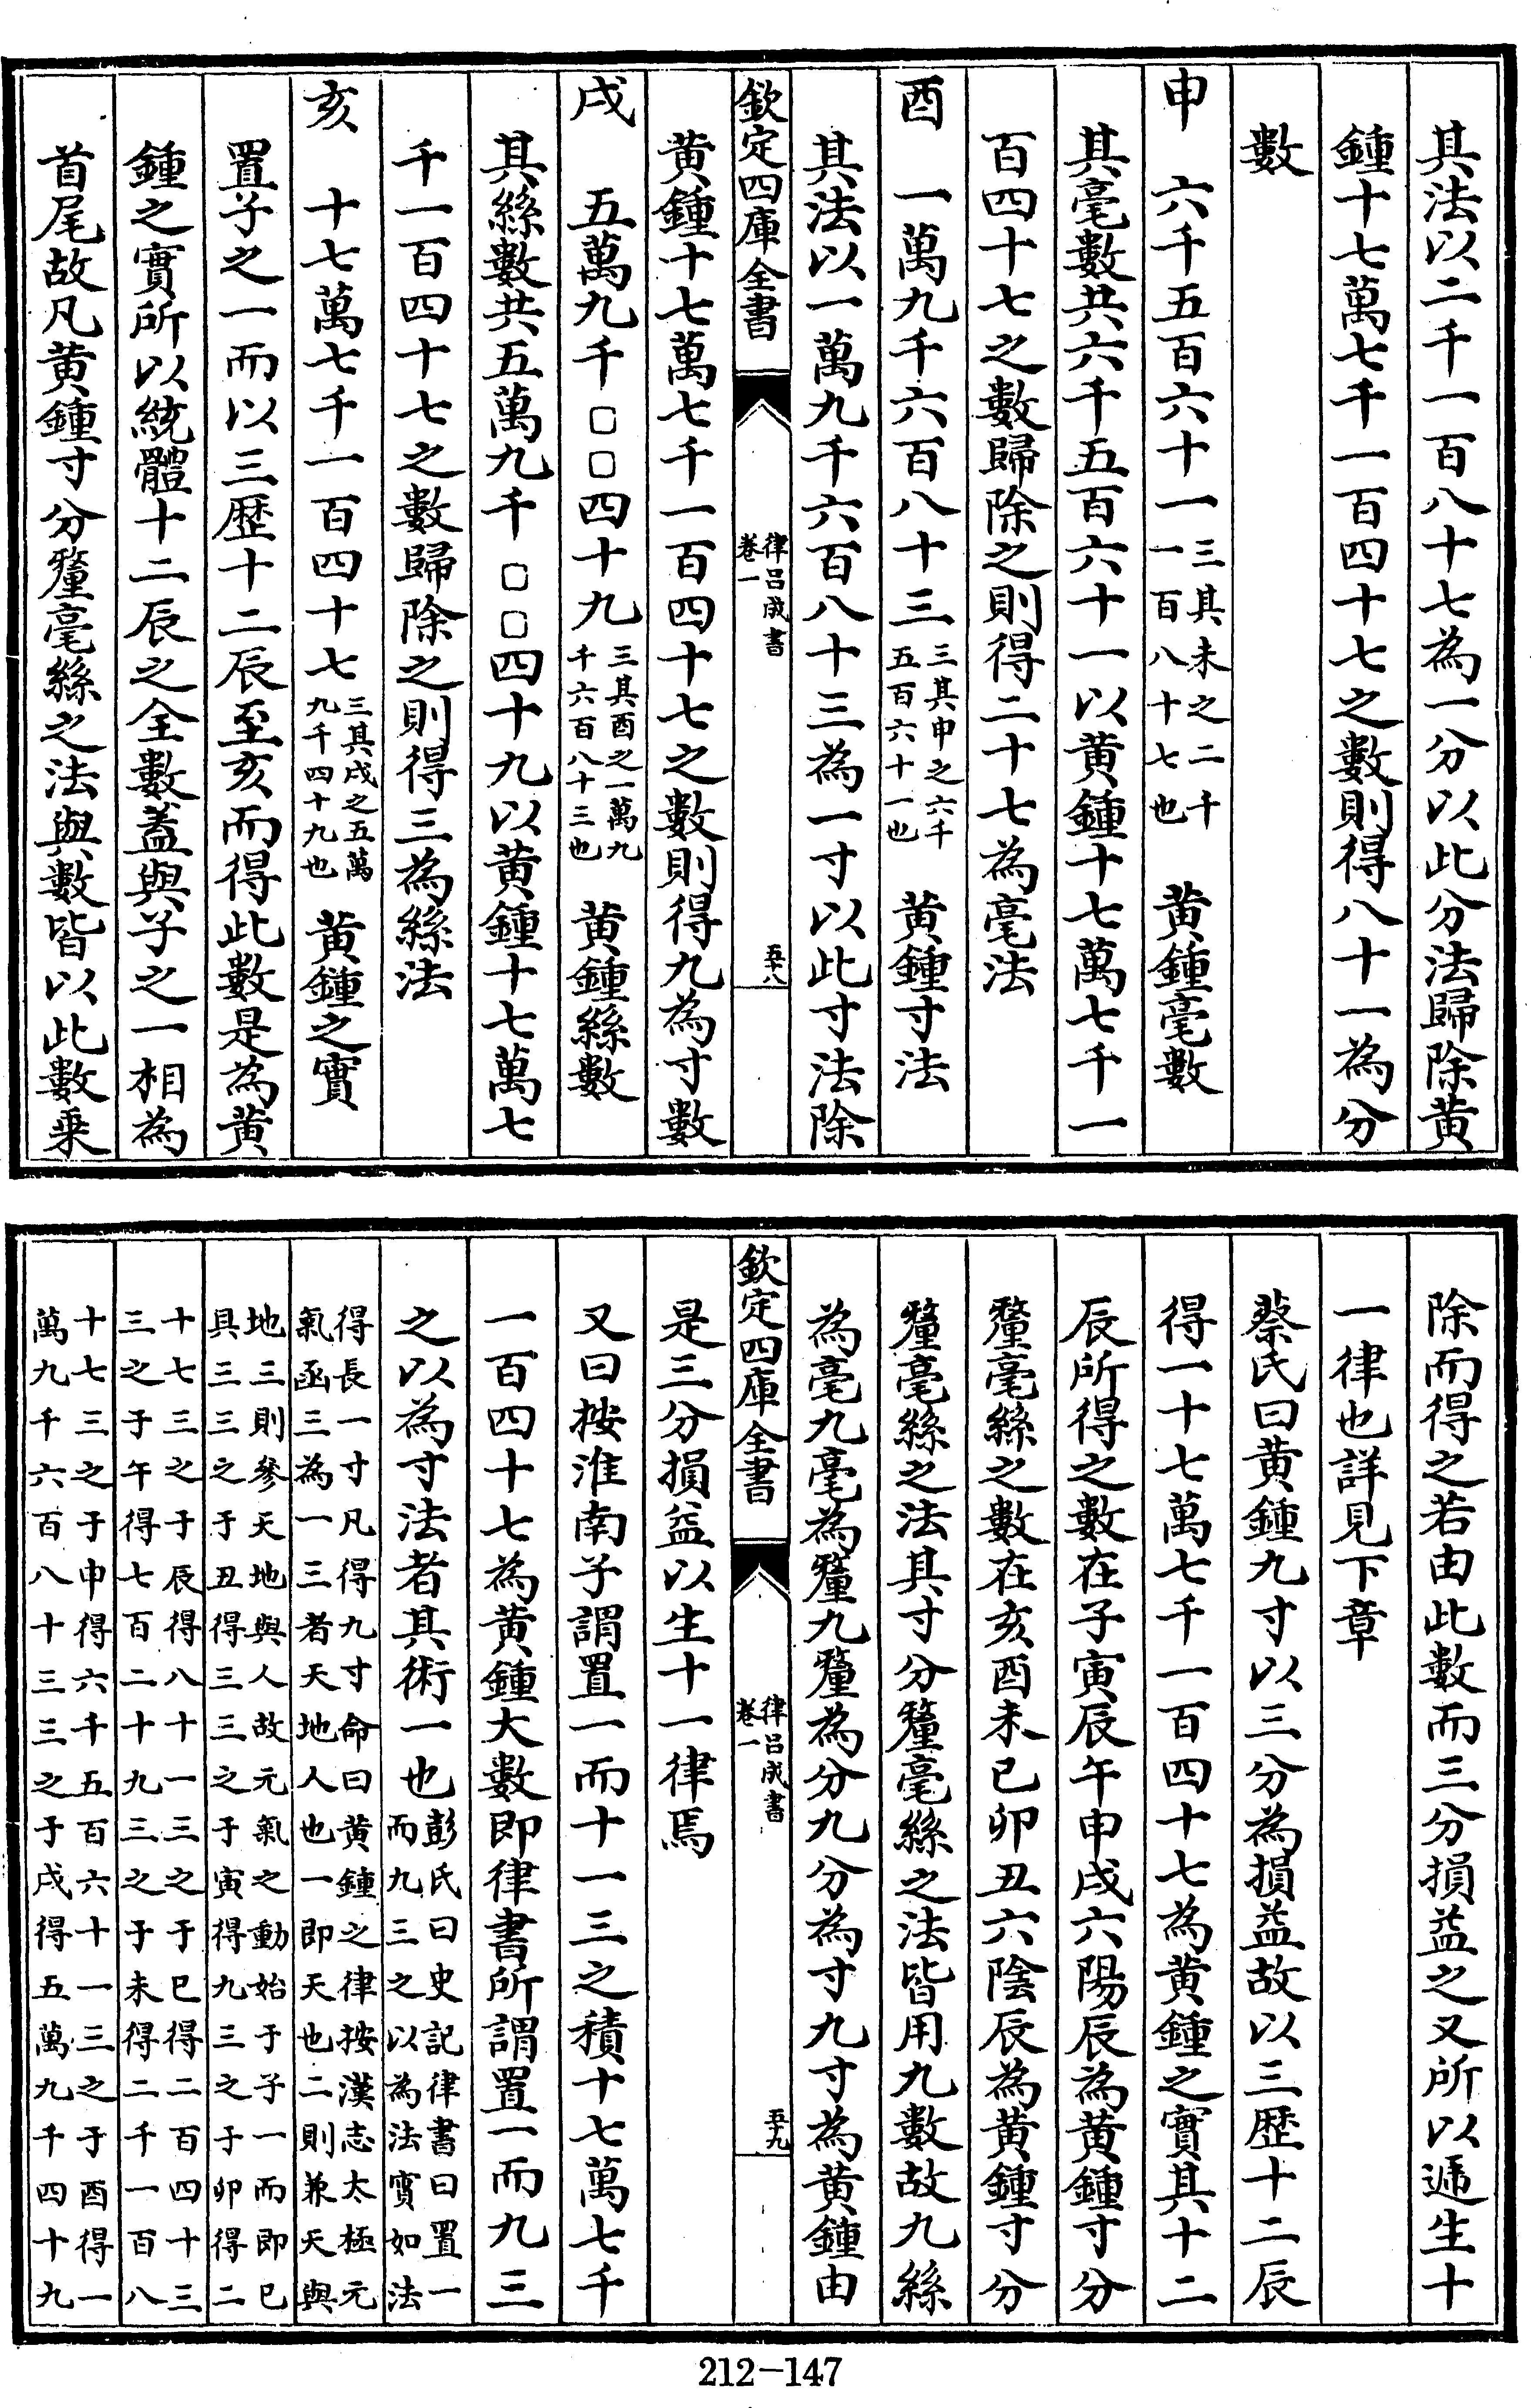 其法以二千一百八十七為一分以此分法歸除黃
鍾十七萬七千一百四十七之數則得八十一為分
數
申　六千五百六十一三其未之二千一百八十七也　黃鍾毫數
其毫數共六千五百六十一以黃鍾十七萬七千一
百四十七之數歸除之則得二十七為毫法
酉　一萬九千六百八十三三其申之六千五百六十一也　黃鍾寸法
其法以一萬九千六百八十三為一寸以此寸法除
欽定四庫全書　律呂成書卷一　五十八
黃鍾十七萬七千一百四十七之數則得九為寸數
戌　五萬九千□□四十九三其酉之一萬九千六百八十三也　黃鍾絲數
其絲數共五萬九千□□四十九以黃鍾十七萬七
千一百四十七之數歸除之則得三為絲法
亥　十七萬七千一百四十七三其戌之五萬九千四十九也　黃鍾之實
置子之一而以三歷十二辰至亥而得此數是為黃
鍾之實所以統體十二辰之全數蓋與子之一相為
首尾故凡黃鍾寸分釐毫絲之法與數皆以此數乗
除而得之若由此數而三分損益之又所以遞生十
一律也詳見下章
蔡氏曰黃鍾九寸以三分為損益故以三歷十二辰
得一十七萬七千一百四十七為黃鍾之實其十二
辰所得之數在子寅辰午申戌六陽辰為黃鍾寸分
釐毫絲之數在亥酉未巳卯丑六陰辰為黃鍾寸分
釐毫絲之法其寸分釐毫絲之法皆用九數故九絲
為毫九毫為釐九釐為分九分為寸九寸為黃鍾由
欽定四庫全書　律呂成書卷一　五十九
是三分損益以生十一律焉
又曰按淮南子謂置一而十一三之積十七萬七千
一百四十七為黃鍾大數即律書所謂置一而九三
之以為寸法者其術一也彭氏曰史記律書曰置一而九三之以為法實如法
得長一寸凡得九寸命曰黃鍾之律按漢志太極元
氣函三為一三者天地人也一即天也二則兼天與
地三則參天地與人故元氣之動始于子一而即已
具三三之于丑得三三之于寅得九三之于卯得二
十七三之于辰得八十一三之于巳得二百四十三
三之于午得七百二十九三之于未得二千一百八
十七三之于申得六千五百六十一三之于酉得一
萬九千六百八十三三之于戌得五萬九千四十九
212-147